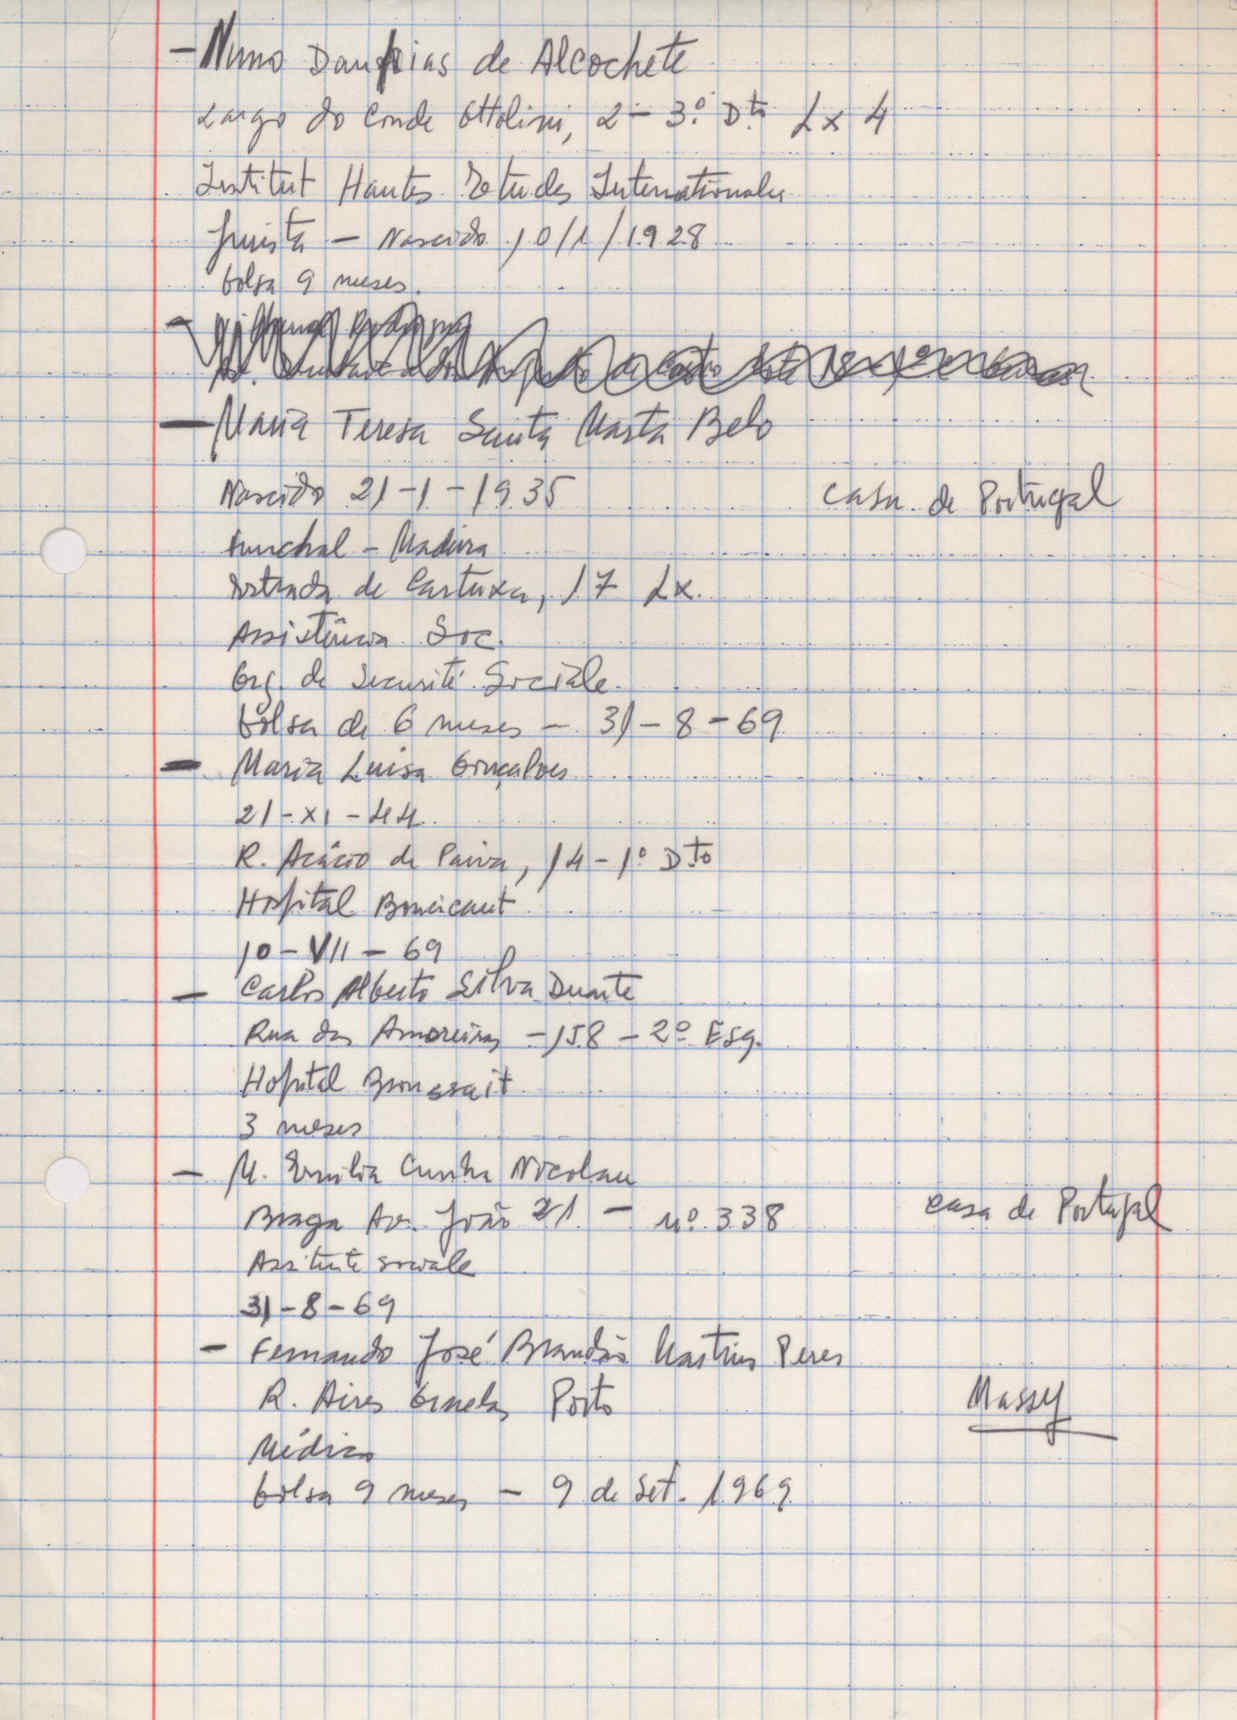 - Nuno Daupias de Alcochete
Largo do Conde Ottolini, 2 - 3º Dto Lx 4
Institut Hautes Etudes Internationales
Jurista - Nascido 10/1/1928
bolsa 9 meses.
-
Av.
- Maria Teresa Santa Marta Belo
Nascido 21-1-1935 Casa de Portugal
Funchal - Madeira
Estrada de Cartuxa, 17 Lx.
Assistência Soc.
Org. de Securité Sociale
bolsa de 6 meses - 31-8-69
- Maria Luisa Gonçalves
21-XI-44
R. Acácio de Paiva, 14-1º Dto
Hospital Boucicaut
10-VII-69
- Carlos Alberto Silva Duarte
Rua das Amoreiras - 158 - 2º Esq.
Hopital Broussait
3 meses
- M. Emília Cunha Nicolau
Braga Av. João 21 - nº 338 casa de Portugal
Assitente sociale
31-8-69
- Fernando José Brandão Martins Peres
R. Aires Ornelas Porto Massy
Médico
bolsa 9 meses - 9 de Set. 1969